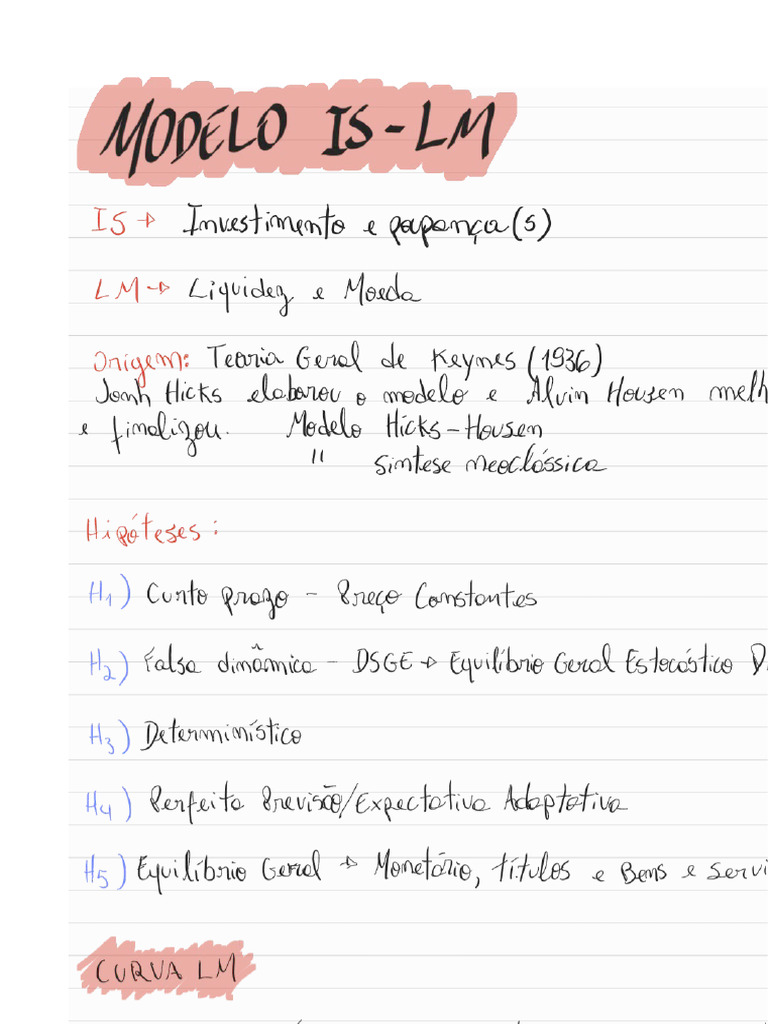 MODELO IS-LM
IS → Investimento e poupança (S)
LM → Liquidez e Moeda
Origem: Teoria Geral de Keynes (1936)
Jonh Hicks elaborou o modelo e Alvin Housen melh
e finalizou. Modelo Hicks-Housen
" síntese neoclássica
Hipóteses:
H1) Curto prazo - Preço Constantes
H2) Falsa dinâmica - DSGE → Equilíbrio Geral Estocástico D
H3) Determinístico
H4) Perfeita Previsão/Expectativa Adaptativa
H5) Equilíbrio Geral → Monetário, títulos e Bens e servi
CURVA LM